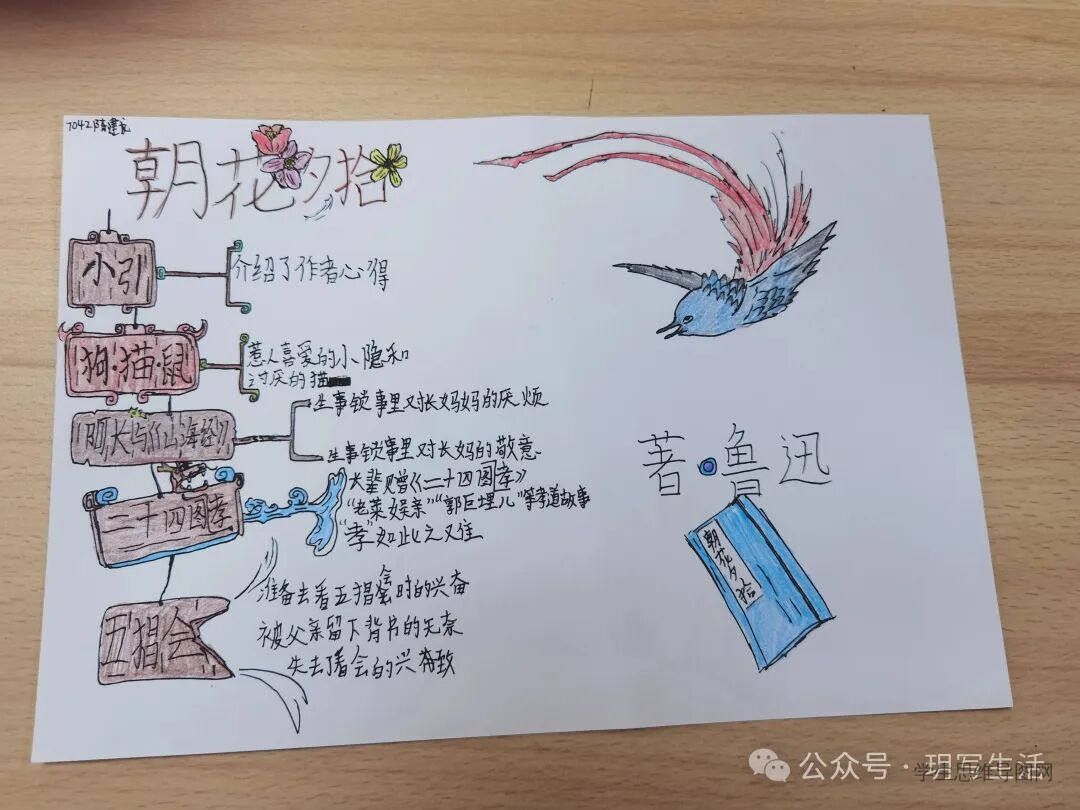 7042隋建龙
朝花夕拾
小引
介绍了作者心得
狗·猫·鼠
惹人喜爱的小隐和
讨厌的猫
阿长与《山海经》
生事锁事里对长妈妈的厌烦
生事锁事里对长妈的敬意
二十四图孝
大辈赠《二十四图孝》
"老莱娱亲""郭巨埋儿"等孝道故事
"孝"如此之又难
五猖会
准备去看五猖会时的兴奋
被父亲留下背书的无奈
失去了看会的兴奋致
著·鲁迅
朝花夕拾
公众号·玥写生活
学生思维导图网